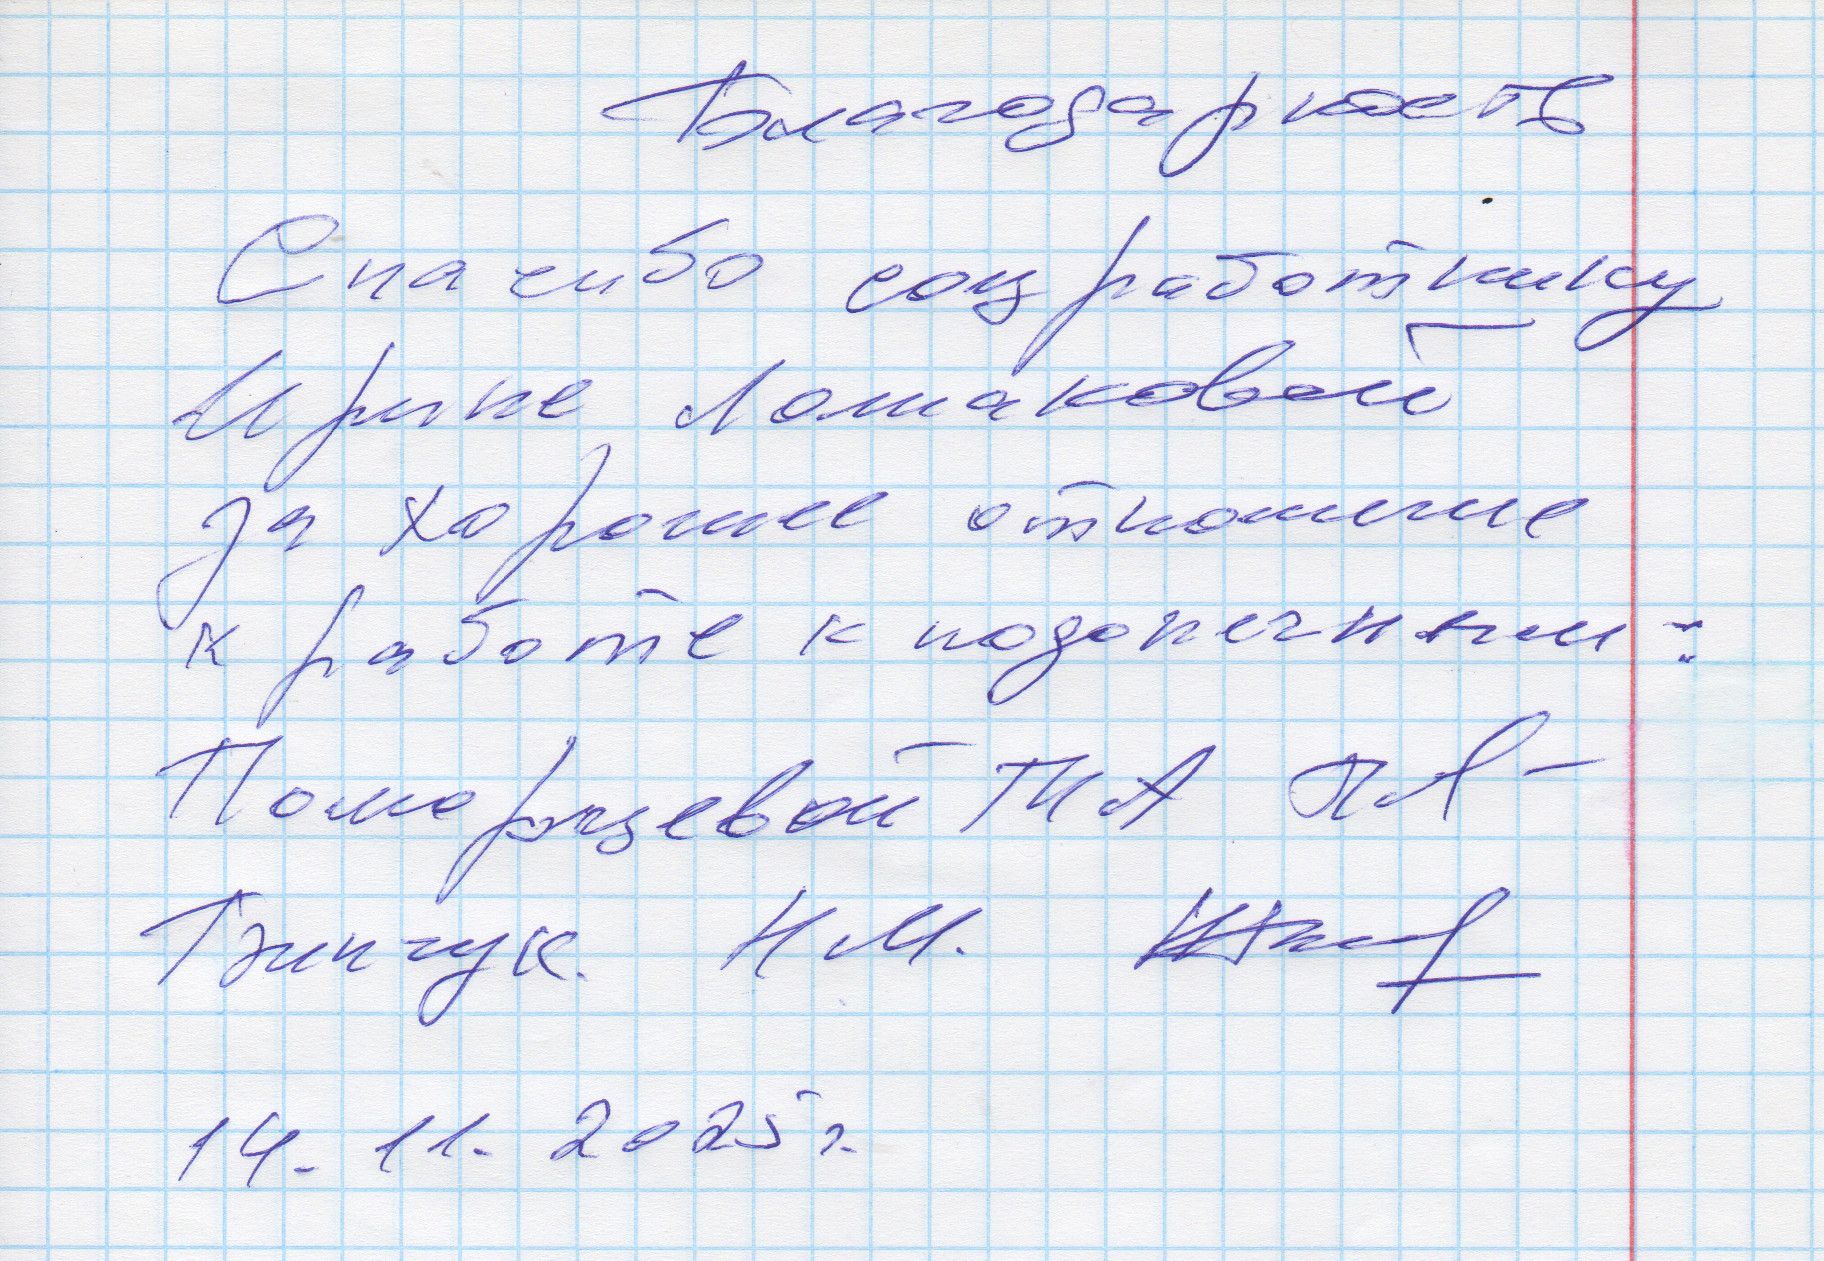 Благодарность
Спасибо соцработнику
Ирине Ломаковой
за хорошее отношение
к работе к подопечным:
Поморцевой
Бинчук. Н.М.
14. 11. 2025 г.